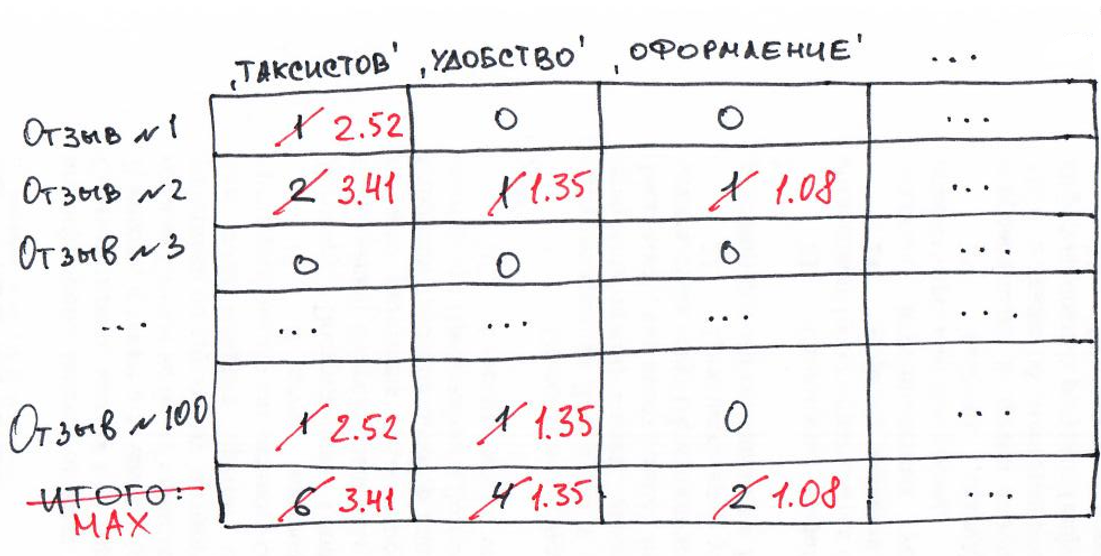 ‚ТАКСИСТОВ' ‚УДОБСТВО' ‚ОФОРМЛЕНИЕ' ...
Отзыв №1 1 2.52 0 0 ...
Отзыв №2 2 3.41 1 1.35 1 1.08 ...
Отзыв №3 0 0 0 ...
... ... ... ... ...
Отзыв №100 1 2.52 1 1.35 0 ...
ИТОГО: 6 3.41 4 1.35 2 1.08 ...
MAX